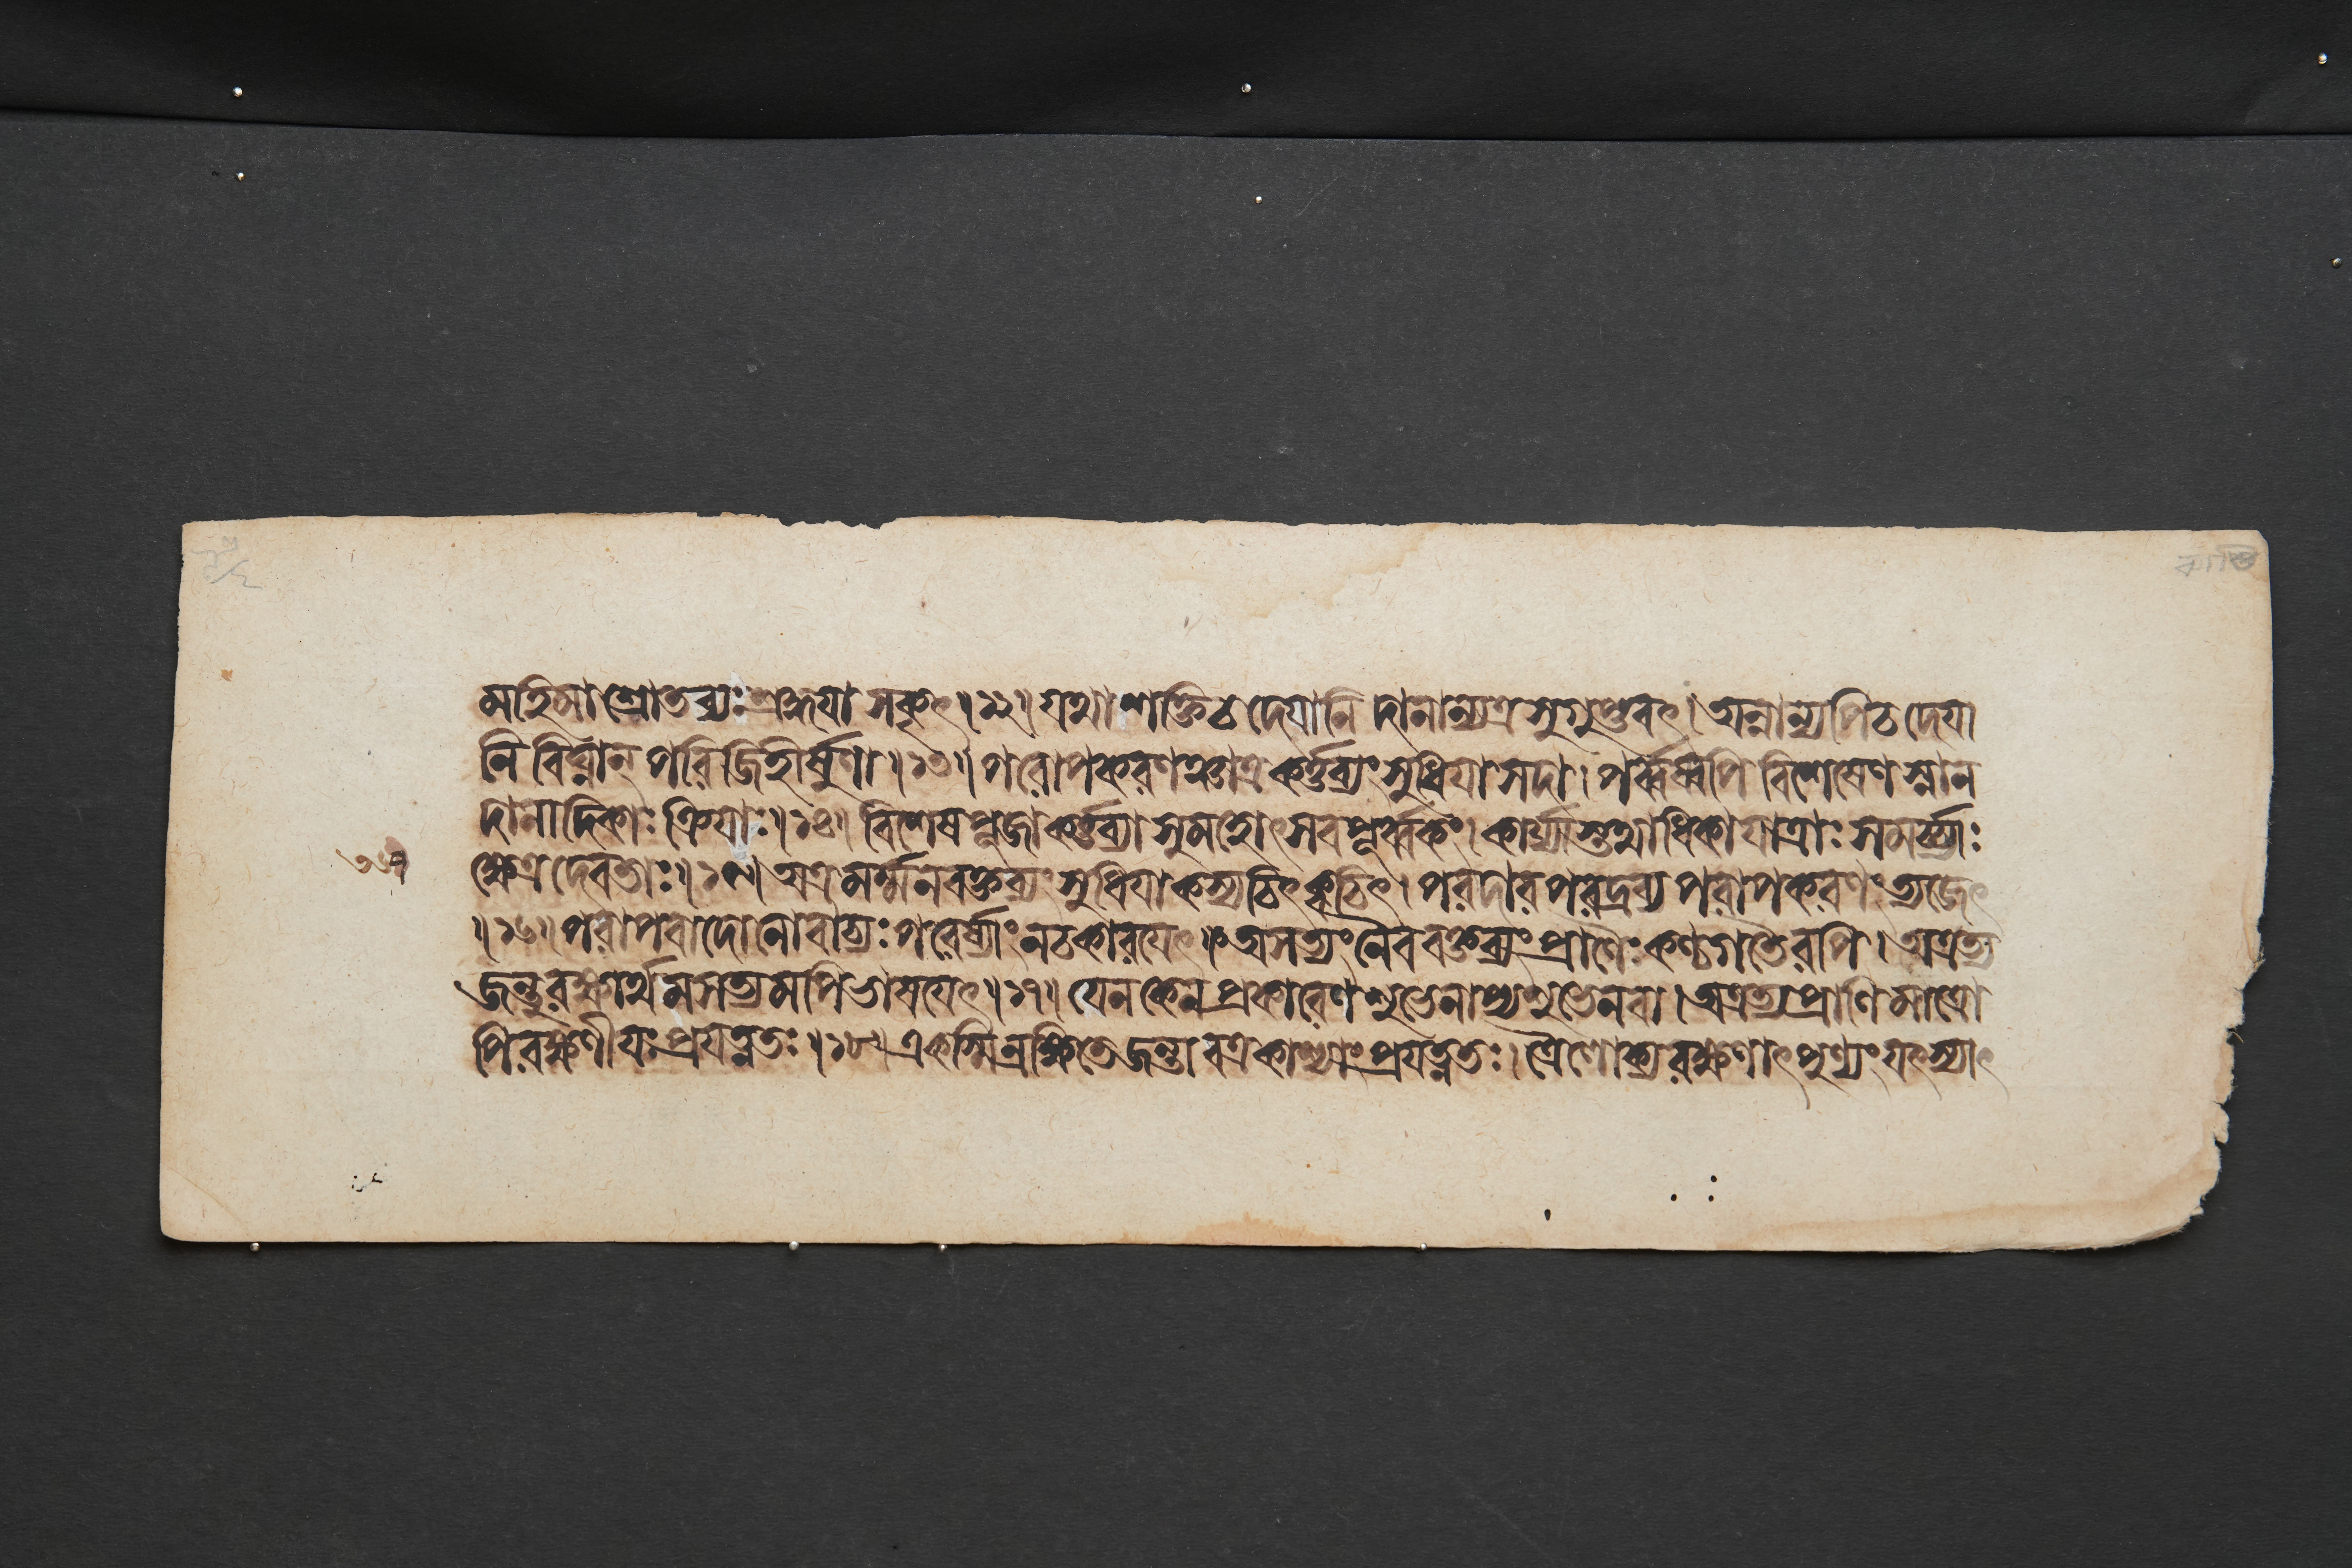 মহিমা শ্রোতব্যঃ শ্রদ্ধয়া সকৃৎ ॥ ১২ ॥ যথাশক্তি চ দেয়ানি দানান্যত্র সুগুপ্তবৎ । অন্নান্যপি চ দেয়া
নি বিঘ্নান্ পরিজিহীর্ষুণা ॥ ১৩ ॥ পরোপকরণঞ্চাত্র কর্ত্তব্যং সুধিয়া সদা । পর্ব্বস্বপি বিশেষেণ স্নান
দানাদিকাঃ ক্রিয়াঃ ॥ ১৪ ॥ বিশেষপূজা কর্ত্তব্যা সুমহোৎসবপূর্ব্বকং । কার্য্যাস্তথাধিকা যাত্রাঃ সমর্চ্চ্যাঃ
ক্ষেত্রদেবতাঃ ॥ ১৫ ॥ অত্র মর্ম্ম ন বক্তব্যং সুধিয়া কস্যচিৎ ক্বচিৎ । পরদার পরদ্রব্য পরাপকরণং ত্যজেৎ
॥ ১৬ ॥ পরাপবাদো নো বাচ্যঃ পরের্ষ্যাং ন চ কারয়েৎ । অসত্যং নৈব বক্তব্যং প্রাণৈঃ কণ্ঠগতৈরপি । অত্রত্য
জন্তুরক্ষার্থমসত্যমপি ভাষয়েৎ ॥ ১৭ ॥ যেন কেন প্রকারেণ শুভেনাপ্যশুভেন বা । অত্রত্য প্রাণিমাত্রো
পি রক্ষণীয়ঃ প্রযত্নতঃ ॥ ১৮ ॥ একস্মিন্রক্ষিতে জন্তাবত্র কাশ্যাং প্রযত্নতঃ । ত্রৈলোক্যরক্ষণাৎ পুণ্যং যৎ স্যাৎ